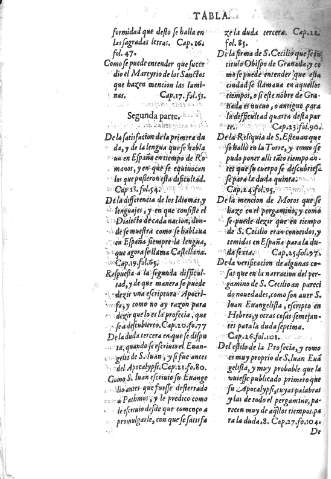 TABLA.
formidad que desto se halla en
las sagradas letras. Cap.16.
fol.47.
Como se puede entender que succe
dio el Martyrio de los Sanctos
que hazen mention las lami-
nas. Cap.17. fol.51.
Segunda parte.
De la satisfacion de la primera du
da, y de la lengua que se habla
ua en España en tiempo de Ro
manos, y en que se equiuocan
los que pusieron esta dificultad.
Cap.18. fol.54.
De la differencia de los Idiomas, y
lenguajes, y en que consiste el
Dialecto de cada nacion, don-
de se muestra como se hablaua
en España siempre la lengua,
que agora se llama Castellana.
Cap.19. fol.65.
Respuesta a la segunda difficul-
tad, y de que manera se puede
dezir una escriptura Apocri-
fo, y como no ay razon para
dezir que lo es la profecia, que
se a descubierto. Cap.20. fo.77
De la duda tercera en que se dispu
ta, quando se escriuio el Euan-
gelio de S. Iuan, y si fue antes
del Apocalypsi. Cap.21. fo.80.
Como S. Iuan escriuio su Euange
lio antes que fuesse desterrado
a Pathmos, y le predico como
le escriuio desde que començo a
promulgarle, con que se satisfa
ze la duda tercera. Cap.22.
fol.83.
De la firma de S. Cecilio que se in
titulo Obispo de Granada, y co
mo se puede entender que esta
ciudad se llamaua en aquellos
tiempos, o si este nõbre de Gra
nada es nueuo, o antiguo para
la difficultad quarta desta par
te. Cap.23. fol.90.
De la Reliquia de S. Esteuan que
se hallò en la Torre, y como se
pudo poner alli tãto tiempo an
tes que su cuerpo se descubriesse
para la duda quinta.
Cap.24. fol.95.
De la mencion de Moros que se
haze en el pergamino, y como
se puede dezir que en tiempo
de S. Cecilio eran conocidos, y
temidos en España para la du-
da sexta. Cap.25. fol.97.
De la verificacion de algunas co-
sas que en la narracion del per-
gamino de S. Cecilio an pareci
do nouedades, como son auer S.
Iuan Euangelista, escripto en
Hebreo, y otras cosas semejan-
tes para la duda septima.
Cap.26. fol.101.
Del estilo de la Profecia, y como
es muy proprio de S. Iuan Euã
gelista, y muy probable que la
vuiesse publicado primero que
su Apocalypsi, cuyas palabras
y las de todo el pergamino, pa-
recen muy de aq̃llos tiempos pa
ra la duda.8. Cap.27. fo.104.
De